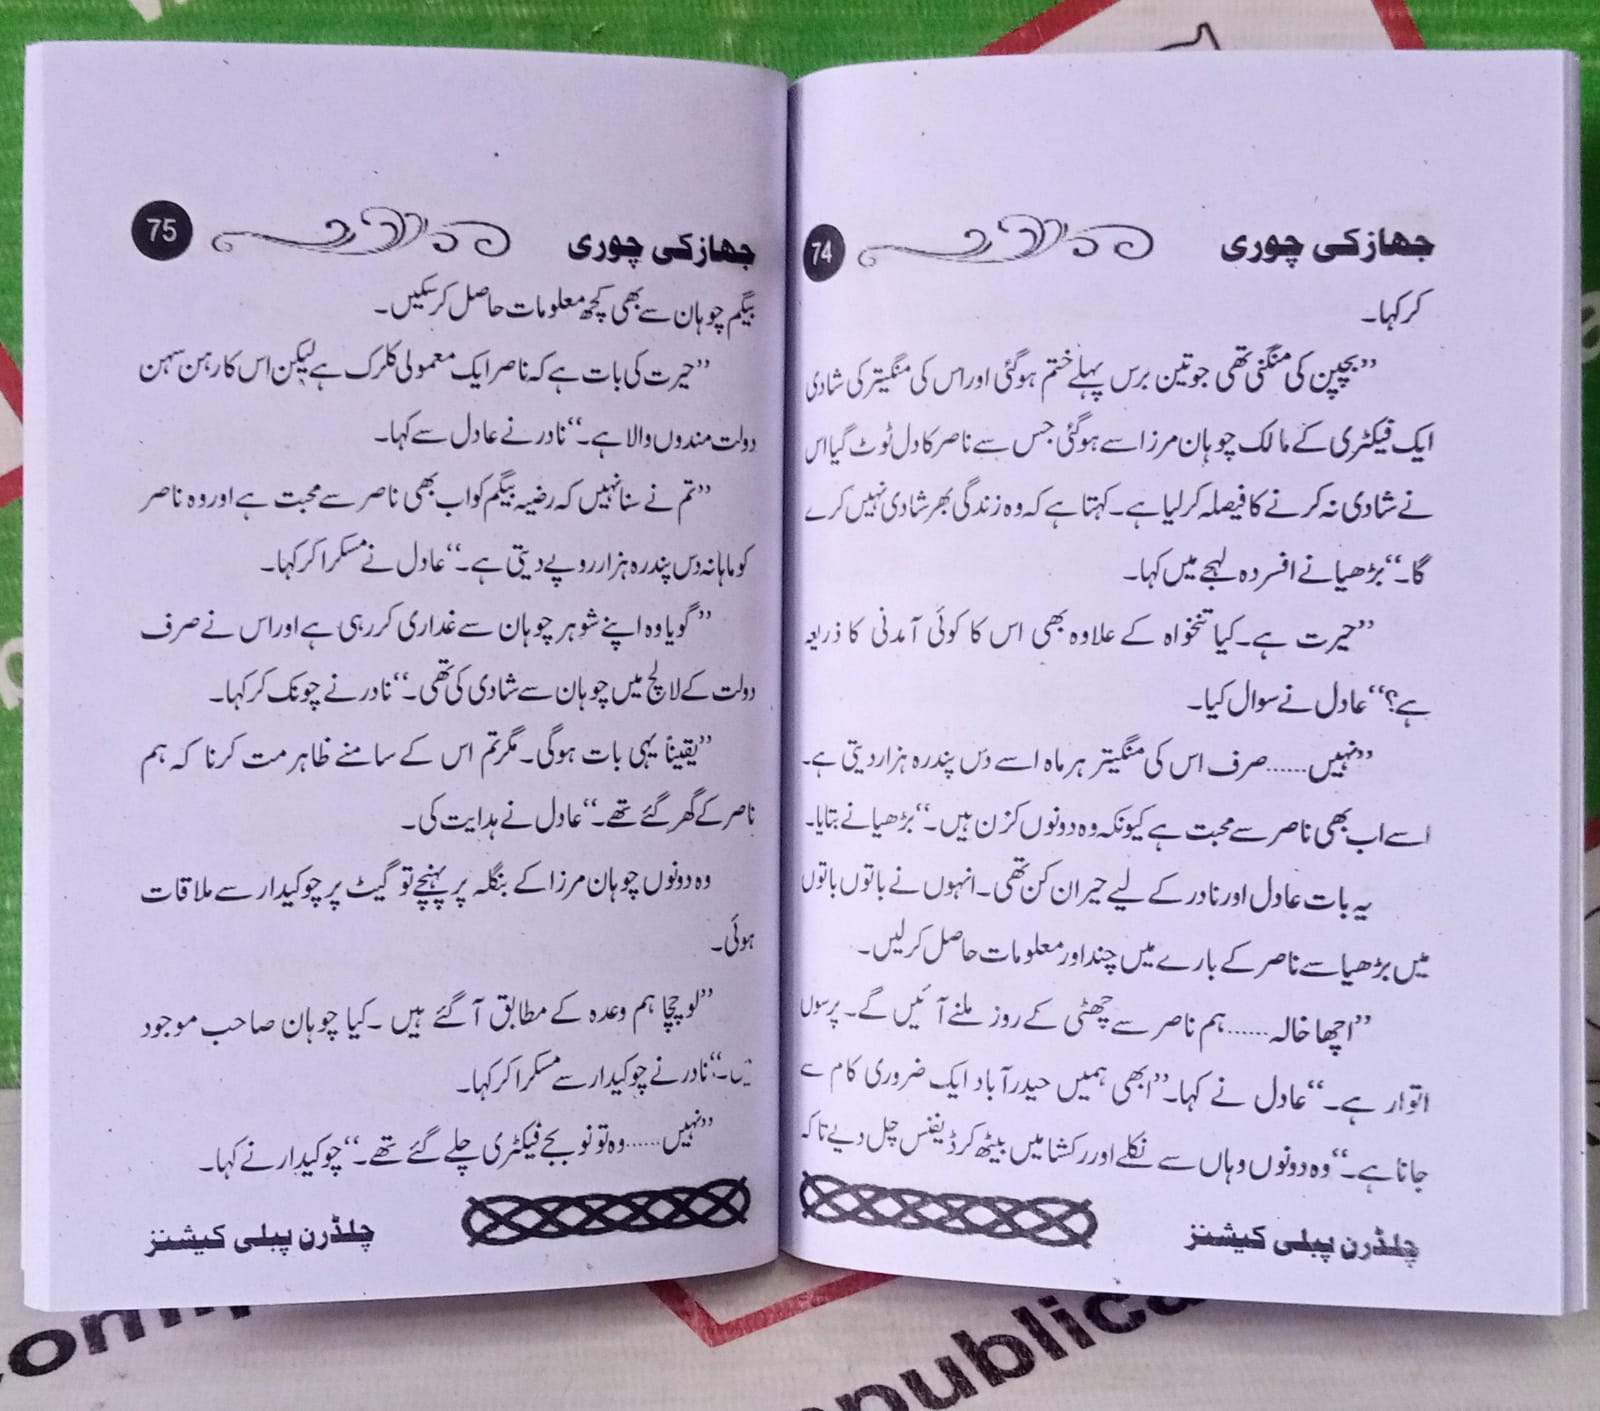 جھاز کی چوری
74
کر کہا۔
’’بچپن کی منگنی تھی جو تین برس پہلے ختم ہوگئی اور اس کی منگیتر کی شادی
ایک فیکٹری کے مالک چوہان مرزا سے ہوگئی جس سے ناصر کا دل ٹوٹ گیا اس
نے شادی نہ کرنے کا فیصلہ کرلیا ہے۔ کہتا ہے کہ وہ زندگی بھر شادی نہیں کرے
گا۔‘‘ بڑھیا نے افسردہ لہجے میں کہا۔
’’حیرت ہے۔ کیا تنخواہ کے علاوہ بھی اس کا کوئی آمدنی کا ذریعہ
ہے؟‘‘ عادل نے سوال کیا۔
’’نہیں...... صرف اس کی منگیتر ہر ماہ اسے دس پندرہ ہزار دیتی ہے۔
اسے اب بھی ناصر سے محبت ہے کیونکہ وہ دونوں کزن ہیں۔‘‘ بڑھیا نے بتایا۔
یہ بات عادل اور نادر کے لیے حیران کن تھی۔ انہوں نے باتوں باتوں
میں بڑھیا سے ناصر کے بارے میں چند اور معلومات حاصل کرلیں۔
’’اچھا خالہ...... ہم ناصر سے چھٹی کے روز ملنے آئیں گے۔ پرسوں
اتوار ہے۔‘‘ عادل نے کہا۔ ’’ابھی ہمیں حیدرآباد ایک ضروری کام سے
جانا ہے۔‘‘ وہ دونوں وہاں سے نکلے اور رکشا میں بیٹھ کر ڈیفنس چل دیے تاکہ
چلڈرن پبلی کیشنز
جھاز کی چوری
75
بیگم چوہان سے بھی کچھ معلومات حاصل کرسکیں۔
’’حیرت کی بات ہے کہ ناصر ایک معمولی کلرک ہے لیکن اس کا رہن سہن
دولت مندوں والا ہے۔‘‘ نادر نے عادل سے کہا۔
’’تم نے سنا نہیں کہ رضیہ بیگم کو اب بھی ناصر سے محبت ہے اور وہ ناصر
کو ماہانہ دس پندرہ ہزار روپے دیتی ہے۔‘‘ عادل نے مسکرا کر کہا۔
’’گویا وہ اپنے شوہر چوہان سے غداری کررہی ہے اور اس نے صرف
دولت کے لالچ میں چوہان سے شادی کی تھی۔‘‘ نادر نے چونک کر کہا۔
’’یقیناً یہی بات ہوگی۔ مگر تم اس کے سامنے ظاہر مت کرنا کہ ہم
ناصر کے گھر گئے تھے۔‘‘ عادل نے ہدایت کی۔
وہ دونوں چوہان مرزا کے بنگلہ پر پہنچے تو گیٹ پر چوکیدار سے ملاقات
ہوئی۔
’’لو چچا ہم وعدہ کے مطابق آگئے ہیں۔ کیا چوہان صاحب موجود
ہیں۔‘‘ نادر نے چوکیدار سے مسکرا کر کہا۔
’’نہیں...... وہ تو نو بجے فیکٹری چلے گئے تھے۔‘‘ چوکیدار نے کہا۔
چلڈرن پبلی کیشنز